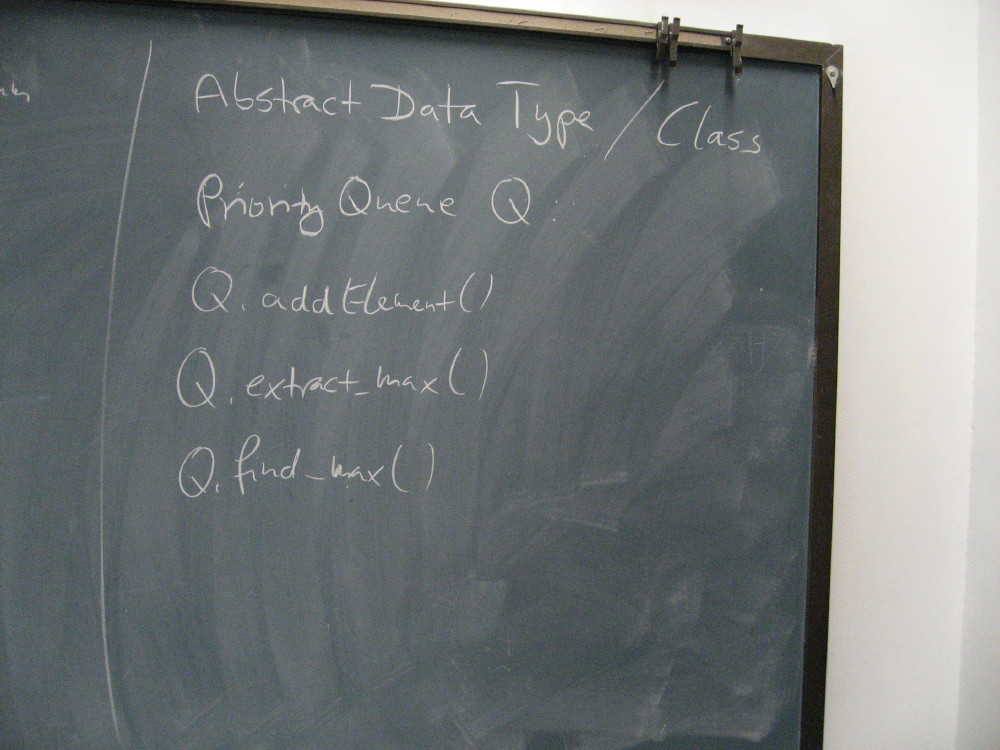 Abstract Data Type / Class
Priority Queue Q:
Q.addElement()
Q.extract_max()
Q.find_max()